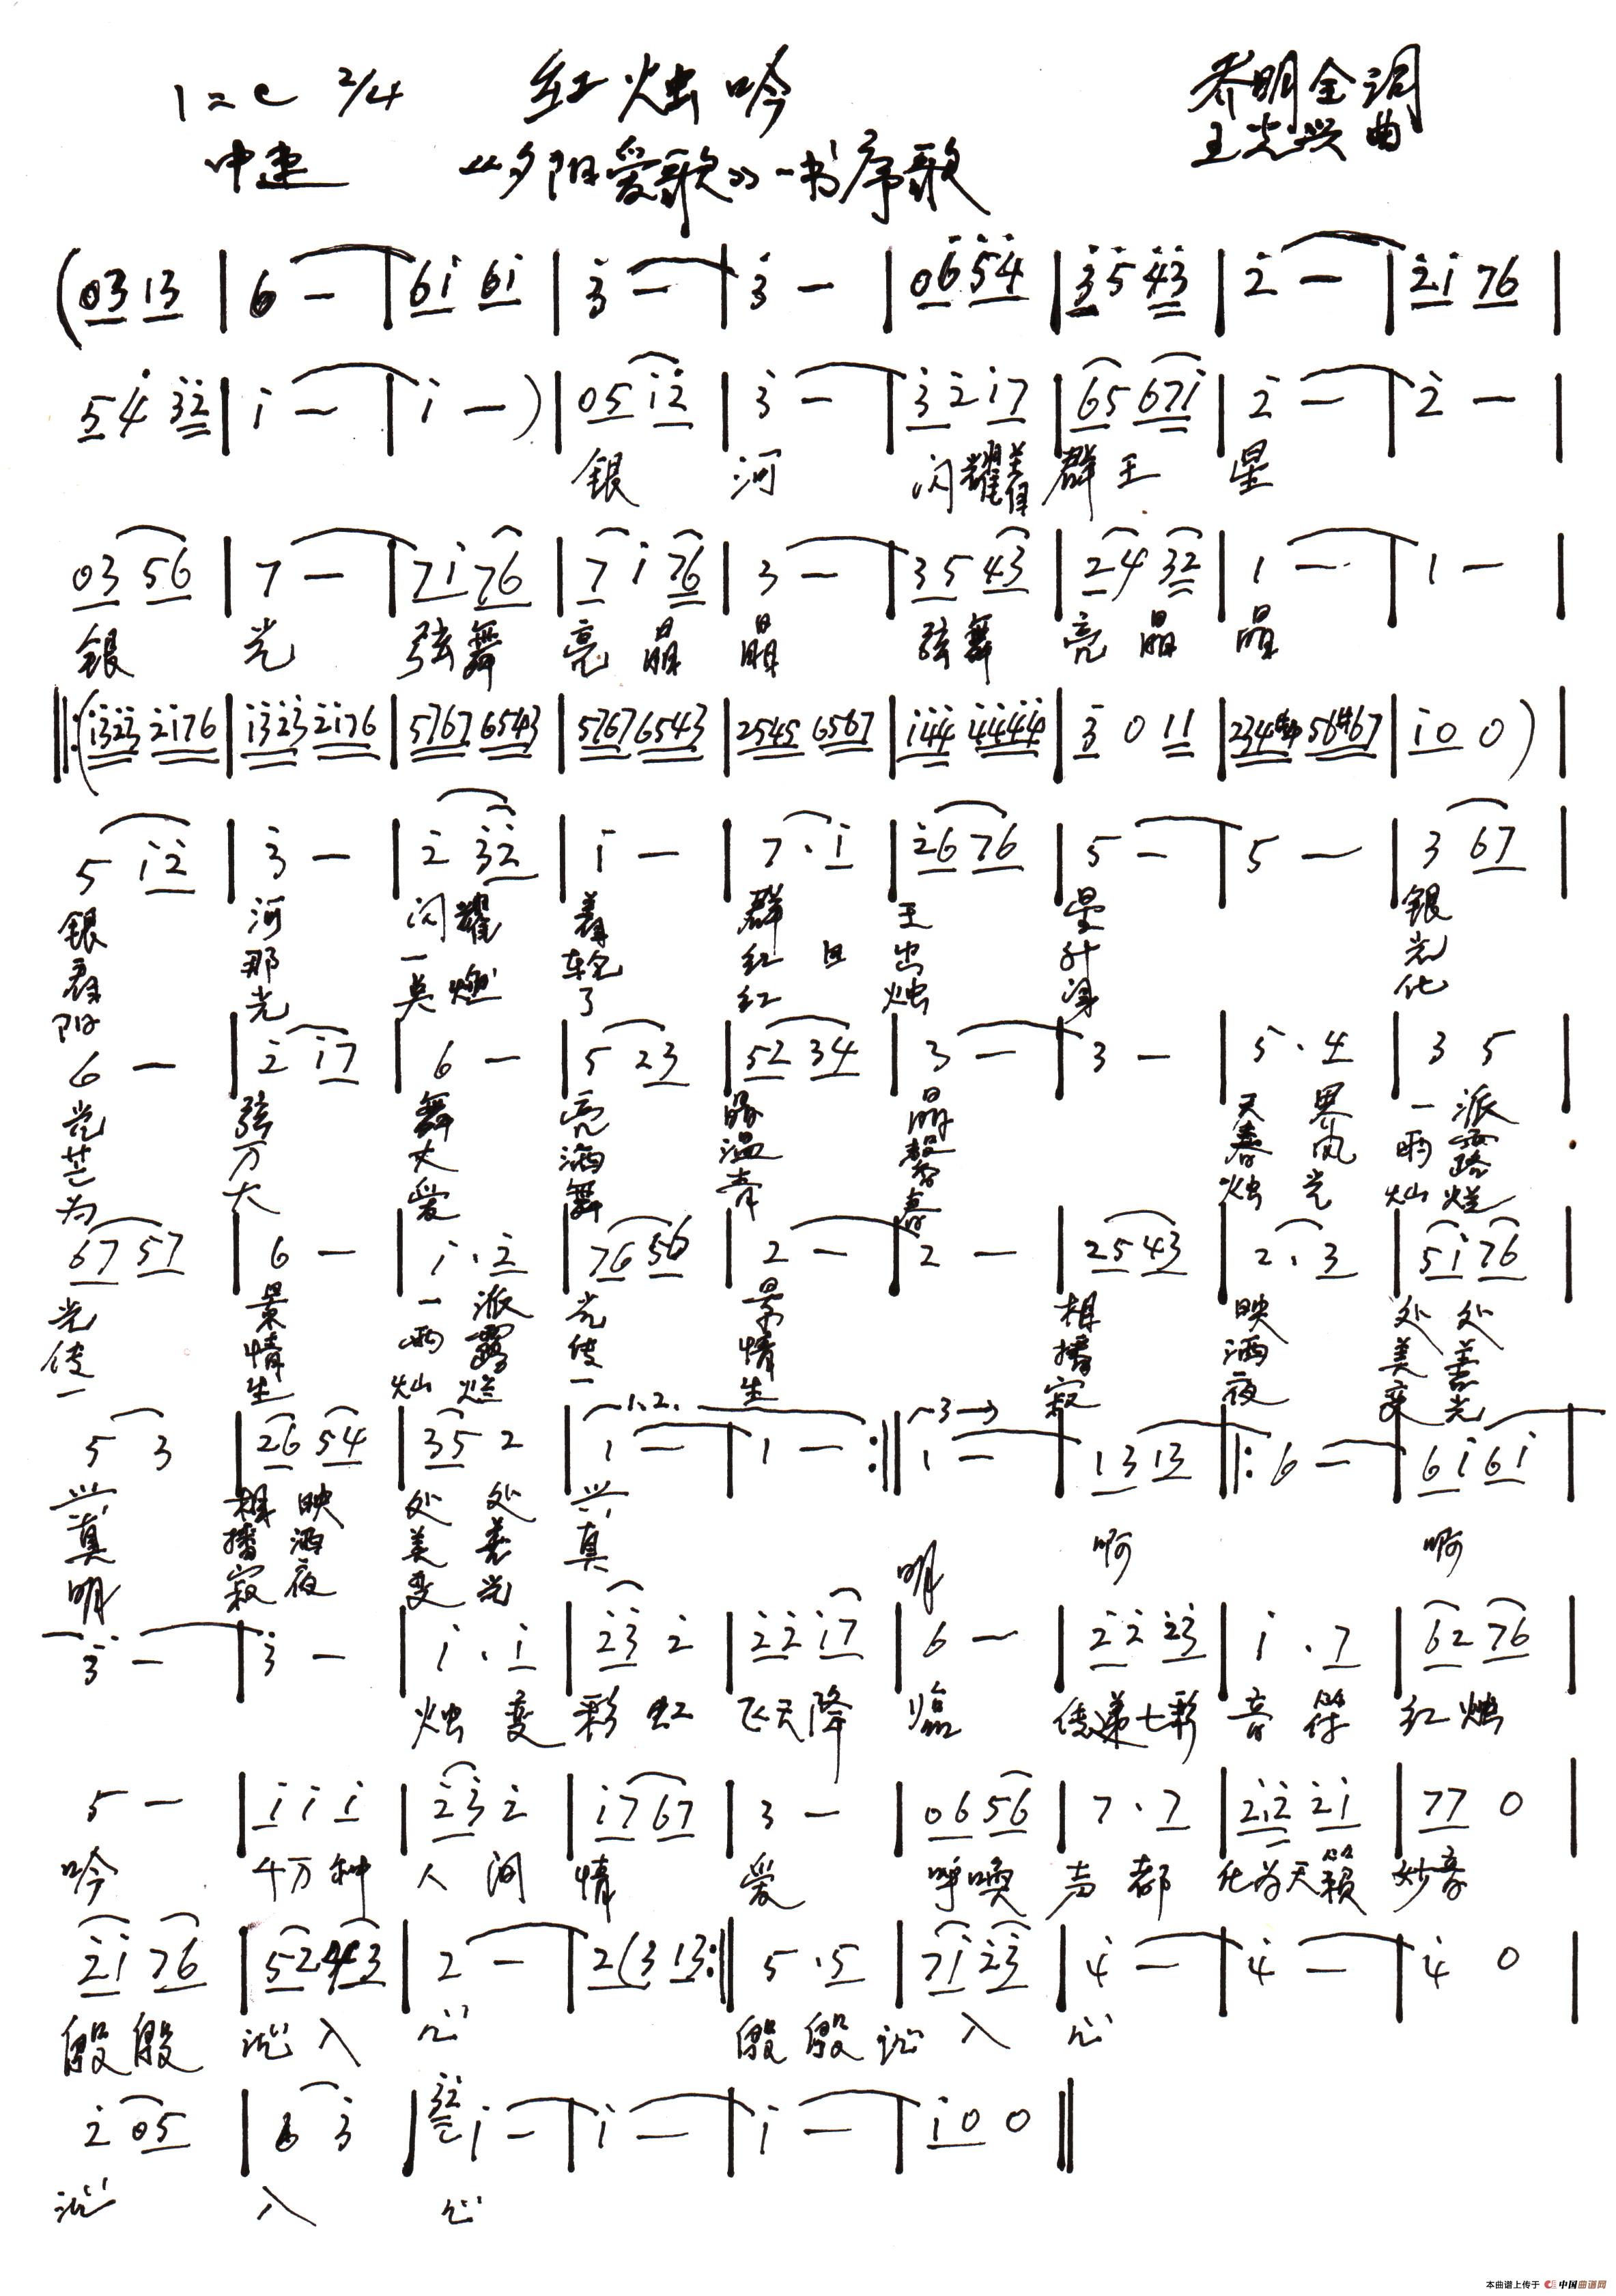 1=C 2/4 红烛吟 乔明全词
中速 《夕阳爱歌》一书序歌 王光兴曲
(03 13 | 6 - | 6i 6i | 3 - | 3 - | 06 54 | 35 43 | 2 - | 2i 76 |
54 32 | i - | i -) | 05 i2 | 3 - | 32 i7 | 65 67i | 2 - | 2 - |
银 河 闪耀着 群王 星
03 56 | 7 - | 7i 76 | 7 i 76 | 3 - | 35 43 | 24 32 | 1 - | 1 - |
银 光 弦舞 亮晶 晶 弦舞 亮晶 晶
‖:(i323 2i76 | i323 2i76 | 5767 6543 | 5767 6543 | 2545 6567 | i44 4444 | 3 0 11 | 234#4 56#67 | i0 0) |
5 i2 | 3 - | 2 32 | i - | 7·i | 26 76 | 5 - | 5 - | 3 67 |
银 河 闪耀 着 群 王 星 银
群 那 一 轮 红日 出 升 光
阳 光 点燃 了 红 烛 身 化
6 - | 2 i7 | 6 - | 5 23 | 52 34 | 3 - | 3 - | 5·4 | 3 5 |
光 弦 舞 亮 晶 晶 天界 一派
芒 万 丈 满 温 馨 春风 雨露
为 大 爱 舞 青 春 烛光 灿烂
67 57 | 6 - | i·2 | 76 56 | 2 - | 2 - | 25 43 | 2·3 | 5i 76 |
光 景 一派 光 景 相 映 处处
传 情 雨露 传 情 播 洒 美善
一 生 灿烂 一 生 寂 夜 变光
5 3 | 26 54 | 35 2 | 1 - | 1 - :‖ 1 - | 13 13 ‖: 6 - | 6i 6i |
1.2. 3
兴 相映 处处 兴 啊 啊
真 播洒 美善 真
明 寂夜 变光 明
3 - | 3 - | i·i | 23 2 | 22 i7 | 6 - | 22 23 | i·7 | 62 76 |
烛变 彩虹 飞天降 临 传递七彩 音符 红烛
5 - | i i i | 23 2 | i7 67 | 3 - | 06 56 | 7·7 | 2·2 2i | 77 0 |
吟 千万种 人间 情 爱 呼唤 声都 化为天籁 妙音
2i 76 | 52 43 | 2 - | 2(3 13:‖ 5·5 | 7i 23 | 4 - | 4 - | 4 0 |
殷殷 沁入 心 殷殷 沁入 心
2 05 | 6 3 | 32 i - | i - | i - | i0 0 ‖
沁 入 心
本曲谱上传于 中国曲谱网